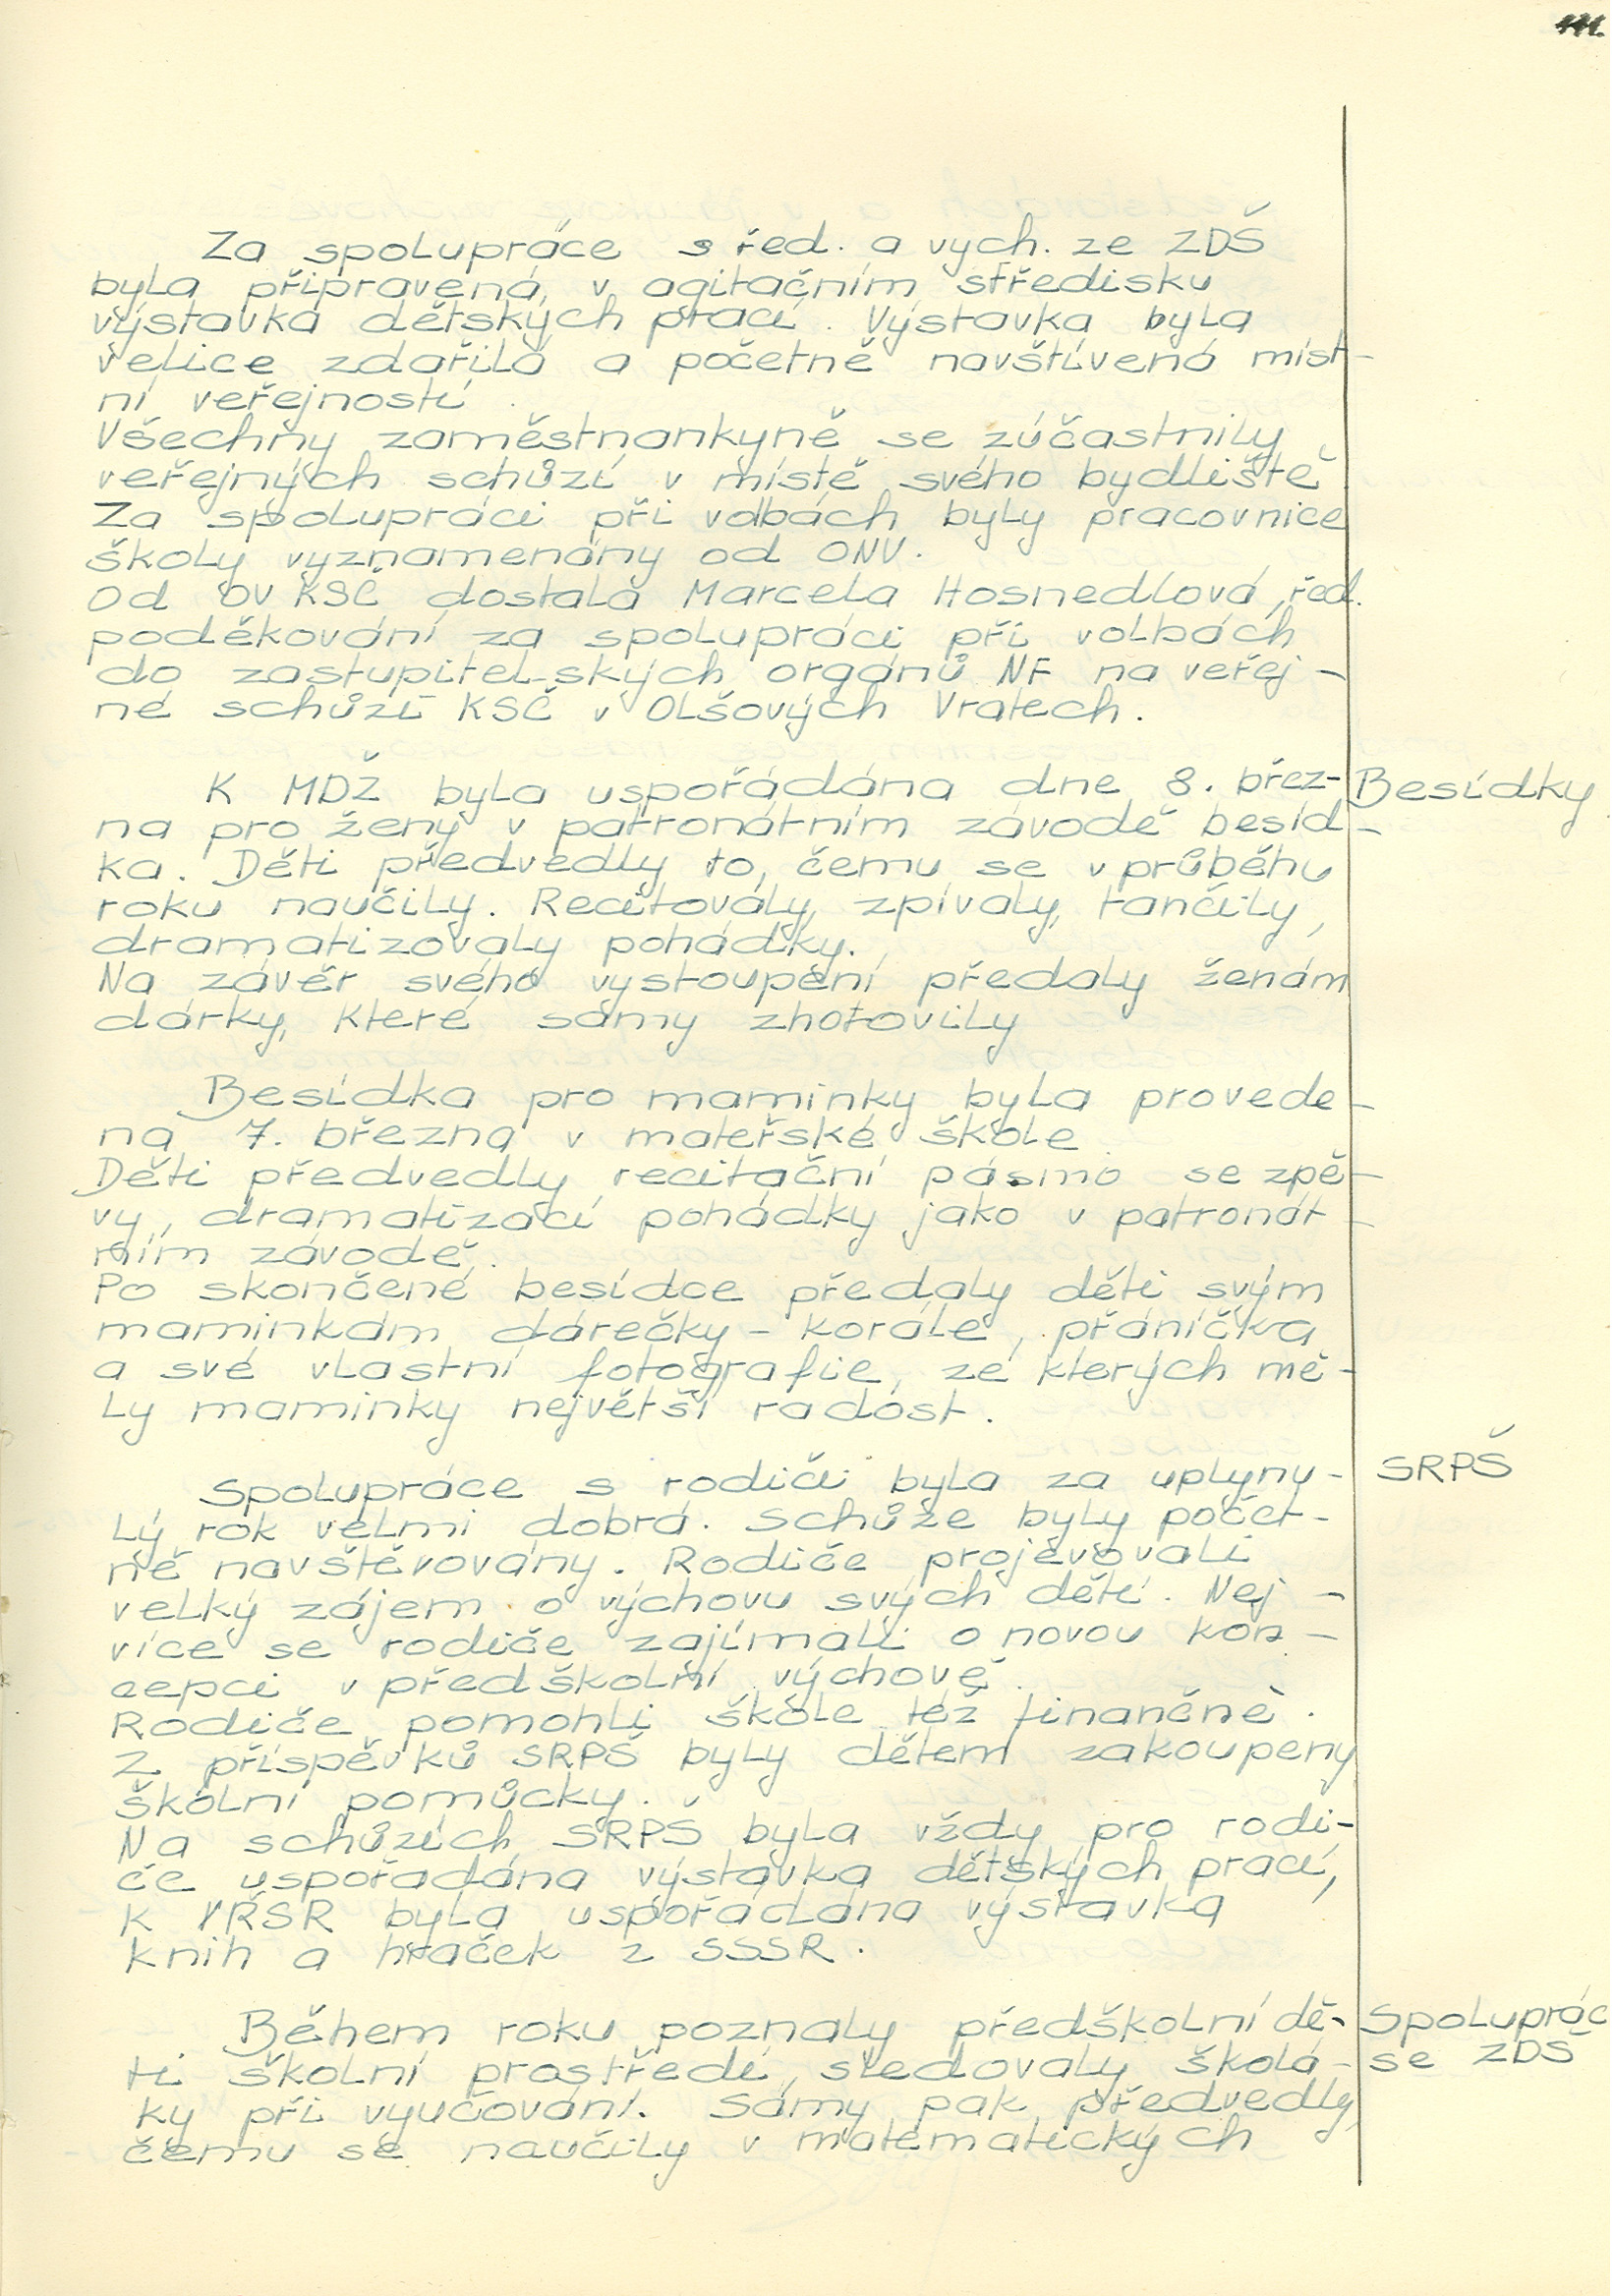 111.
Za spolupráce s řed. a vych. ze ZDŠ
byla připravená v agitačním středisku
výstavka dětských prací. Výstavka byla
velice zdařilá a početně navštívená míst-
ní veřejností.
Všechny zaměstnankyně se zúčastnily
veřejných schůzí v místě svého bydliště
Za spolupráci při volbách byly pracovnice
školy vyznamenány od ONV.
Od OV KSČ dostala Marcela Hosnedlová, řed.
poděkování za spolupráci při volbách
do zastupitelských orgánů NF na veřej-
né schůzi KSČ v Olšových Vratech.
K MDŽ byla uspořádána dne 8. břez-
Besídky
na pro ženy v patronátním závodě besíd-
ka. Děti předvedly to, čemu se v průběhu
roku naučily. Recitovaly, zpívaly, tančily,
dramatizovaly pohádky.
Na závěr svého vystoupení předaly ženám
dárky, které samy zhotovily
Besídka pro maminky byla provede-
na 7. března v mateřské škole.
Děti předvedly recitační pásmo se zpě-
vy, dramatizací pohádky jako v patronát-
ním závodě.
Po skončené besídce předaly děti svým
maminkám dárečky - korále, přáníčka
a své vlastní fotografie, ze kterých mě-
ly maminky největší radost.
Spolupráce s rodiči byla za uplynu-
SRPŠ
lý rok velmi dobrá. Schůze byly počet-
ně navštěvovány. Rodiče projevovali
velký zájem o výchovu svých dětí. Nej-
více se rodiče zajímali o novou kon-
cepci v předškolní výchově.
Rodiče pomohli škole též finančně.
Z příspěvků SRPŠ byly dětem zakoupeny
školní pomůcky.
Na schůzích SRPŠ byla vždy pro rodi-
če uspořadána výstavka dětských prací,
k VŘSR byla uspořádána výstavka
knih a hraček z SSSR.
Během roku poznaly předškolní dě-
Spoluprác
ti školní prostředí, sledovaly školá-
se ZDŠ
ky při vyučování. Samy pak předvedly,
čemu se naučily v matematických